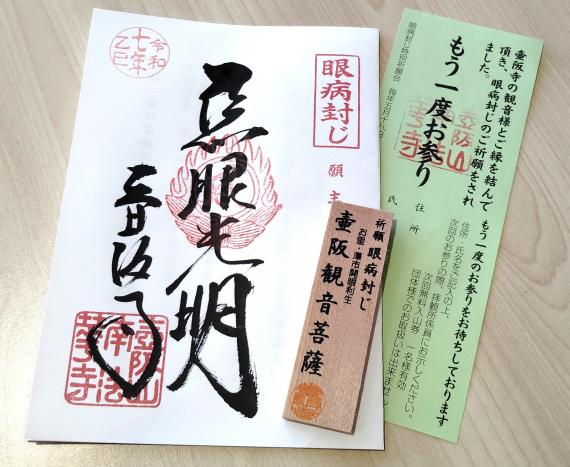 令和
七年
乙巳
眼病封じ
願主
眼光明
壺阪寺
壺阪山
南法
華寺
祈願 眼病封じ
お里・澤市開眼利生
壷阪観音菩薩
壷阪寺の観音様とご縁を結んで
頂き、眼病封じのご祈願をされ
ました。
もう一度お参り
壺阪山
南法
華寺
眼病封じ特別祈願会 毎年五月十八日
もう一度のお参りをお待ちしております
住所、氏名をご記入の上、
次回のお参りの際、拝観所係員にお示しください。
次回無料入山券 一名様有効
団体様でのお取扱いは出来ません
住所
氏